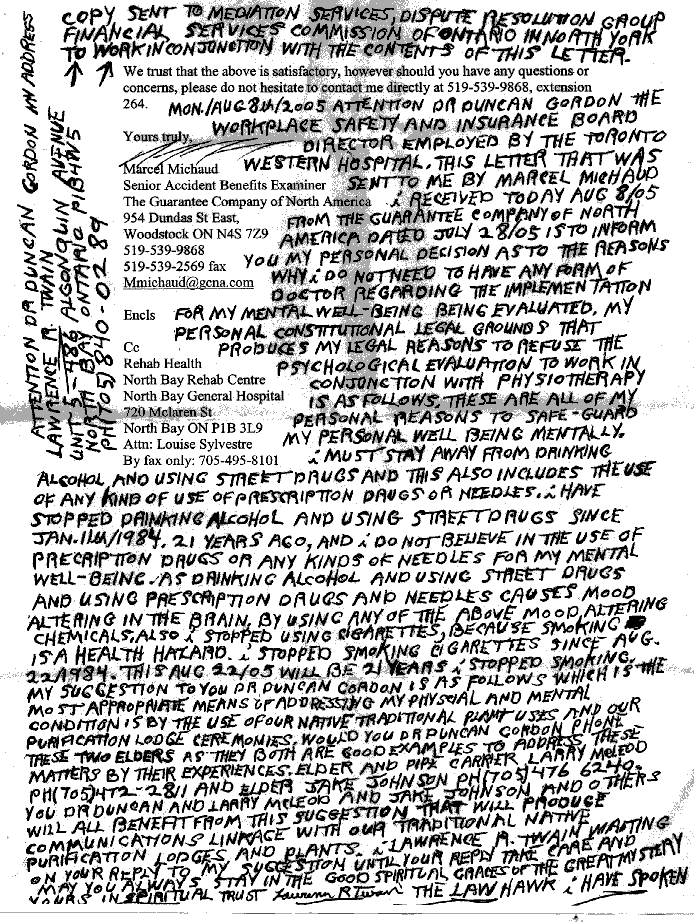 COPY SENT TO MEDIATION SERVICES, DISPUTE RESOLUTION GROUP
FINANCIAL SERVICES COMMISSION OF ONTARIO IN NORTH YORK
TO WORK IN CONJUNCTION WITH THE CONTENTS OF THIS LETTER.
ATTENTION DR DUNCAN GORDON MY ADDRESS
LAWRENCE R. TWAIN
UNIT 5-486 ALGONQUIN AVENUE
NORTH BAY ONTARIO P1B4W5
PH(705)840-0289
We trust that the above is satisfactory, however should you have any questions or
concerns, please do not hesitate to contact me directly at 519-539-9868, extension
264.
Yours truly,
Marcel Michaud
Senior Accident Benefits Examiner
The Guarantee Company of North America
954 Dundas St East,
Woodstock ON N4S 7Z9
519-539-9868
519-539-2569 fax
Mmichaud@gcna.com
Encls
Cc
Rehab Health
North Bay Rehab Centre
North Bay General Hospital
720 Mclaren St
North Bay ON P1B 3L9
Attn: Louise Sylvestre
By fax only: 705-495-8101
MON./AUG 8TH/2005 ATTENTION DR DUNCAN GORDON THE
WORKPLACE SAFETY AND INSURANCE BOARD
DIRECTOR EMPLOYED BY THE TORONTO
WESTERN HOSPITAL. THIS LETTER THAT WAS
SENT TO ME BY MARCEL MICHAUD
i RECEIVED TODAY AUG 8/05
FROM THE GUARANTEE COMPANY OF NORTH
AMERICA DATED JULY 28/05 IS TO INFORM
YOU MY PERSONAL DECISION AS TO THE REASONS
WHY i DO NOT NEED TO HAVE ANY FORM OF
DOCTOR REGARDING THE IMPLEMENTATION
FOR MY MENTAL WELL-BEING BEING EVALUATED. MY
PERSONAL CONSTITUTIONAL LEGAL GROUNDS THAT
PRODUCES MY LEGAL REASONS TO REFUSE THE
PSYCHOLOGICAL EVALUATION TO WORK IN
CONJUNCTION WITH PHYSIOTHERAPY
IS AS FOLLOWS, THESE ARE ALL OF MY
PERSONAL REASONS TO SAFE-GUARD
MY PERSONAL WELL BEING MENTALLY.
i MUST STAY AWAY FROM DRINKING
ALCOHOL AND USING STREET DRUGS AND THIS ALSO INCLUDES THE USE
OF ANY KIND OF USE OF PRESCRIPTION DRUGS OR NEEDLES. i HAVE
STOPPED DRINKING ALCOHOL AND USING STREET DRUGS SINCE
JAN. 11TH/1984. 21 YEARS AGO, AND i DO NOT BELIEVE IN THE USE OF
PRECRIPTION DRUGS OR ANY KINDS OF NEEDLES FOR MY MENTAL
WELL-BEING. AS DRINKING ALCOHOL AND USING STREET DRUGS
AND USING PRESCRIPTION DRUGS AND NEEDLES CAUSES MOOD
ALTERING IN THE BRAIN, BY USING ANY OF THE ABOVE MOOD, ALTERING
CHEMICALS, ALSO i STOPPED USING CIGARETTES, BECAUSE SMOKING
IS A HEALTH HAZARD. i STOPPED SMOKING CIGARETTES SINCE AUG.
22/1984. THIS AUG 22/05 WILL BE 21 YEARS i STOPPED SMOKING.
MY SUGGESTION TO YOU DR DUNCAN GORDON IS AS FOLLOWS WHICH IS THE
MOST APPROPRIATE MEANS OF ADDRESSING MY PHYSCIAL AND MENTAL
CONDITION IS BY THE USE OF OUR NATIVE TRADITIONAL PLANT USES AND OUR
PURIFICATION LODGE CEREMONIES. WOULD YOU DR DUNCAN GORDON PHONE
THESE TWO ELDERS AS THEY BOTH ARE GOOD EXAMPLES TO ADDRESS THESE
MATTERS BY THEIR EXPERIENCES. ELDER AND PIPE CARRIER LARRY McLEOD
PH(705)472-2811 AND ELDER JAKE JOHNSON PH(705)476 6240.
YOU DR DUNCAN AND LARRY McLEOD AND JAKE JOHNSON AND OTHERS
WILL ALL BENEFIT FROM THIS SUGGESTION THAT WILL PRODUCE
COMMUNICATIONS LINKAGE WITH OUR TRADITIONAL NATIVE
PURIFICATION LODGES AND PLANTS. i LAWRENCE R. TWAIN WAITING
ON YOUR REPLY TO MY SUGGESTION UNTIL YOUR REPLY TAKE CARE AND
MAY YOU ALWAYS STAY IN THE GOOD SPIRITUAL GRACES OF THE GREAT MYSTERY
YOURS IN SPIRITUAL TRUST Lawrence R Twain THE LAW HAWK i HAVE SPOKEN